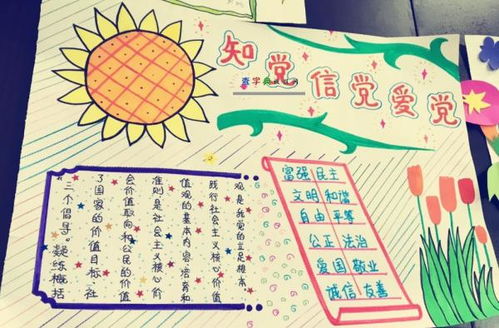 知党信党爱党
查字典
三个倡导。凝练概括
了国家的价值目标、社
会价值取向和公民的价值
准则是社会主义核心价
值观的基本内容培育和
践行社会主义核心价值
观是我党的立足根本
富强 民主
文明 和谐
自由 平等
公正 法治
爱国 敬业
诚信 友善